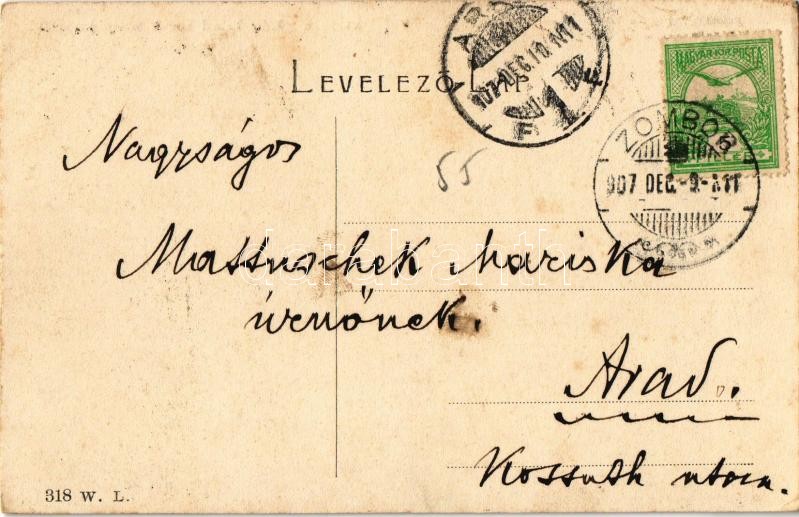 LEVELEZŐ-LAP
ARAD
907 DEC.10.
1
MAGYAR KIR. POSTA
ZOMBOR
907 DEC.-9.
55
Nagyságos
Mattuschek Mariska
úrnőnek.
Arad.
Kossuth utca.
318 W. L.
darabanth